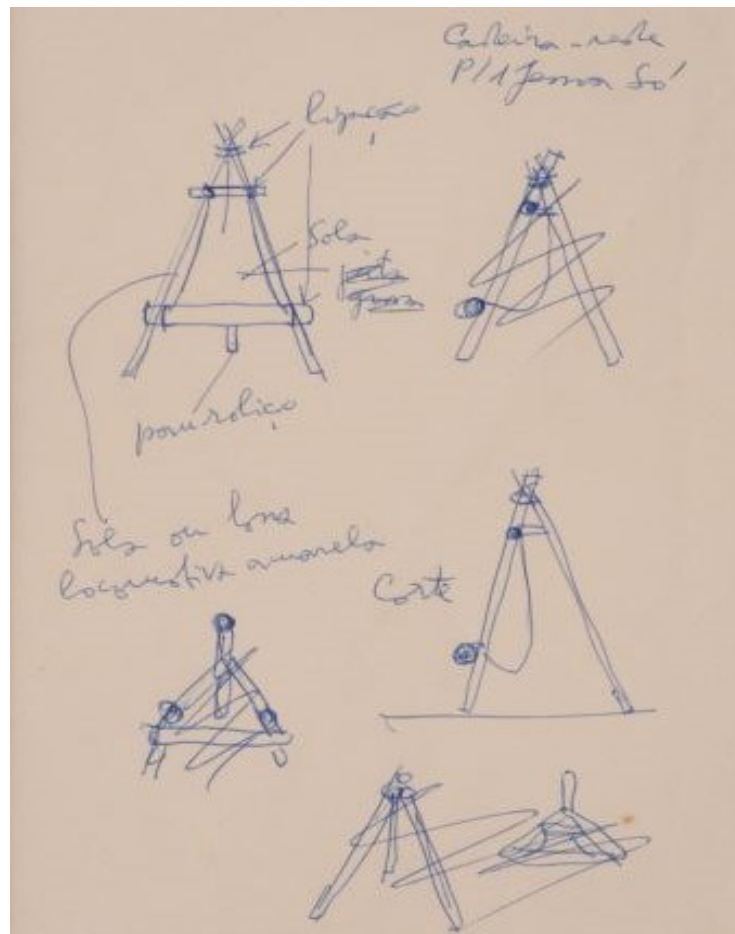 Cadeira-rede
P/1 pessoa só
ligação
Sola
pau roliço
Sola ou lona
locomotiva amarela
Corte